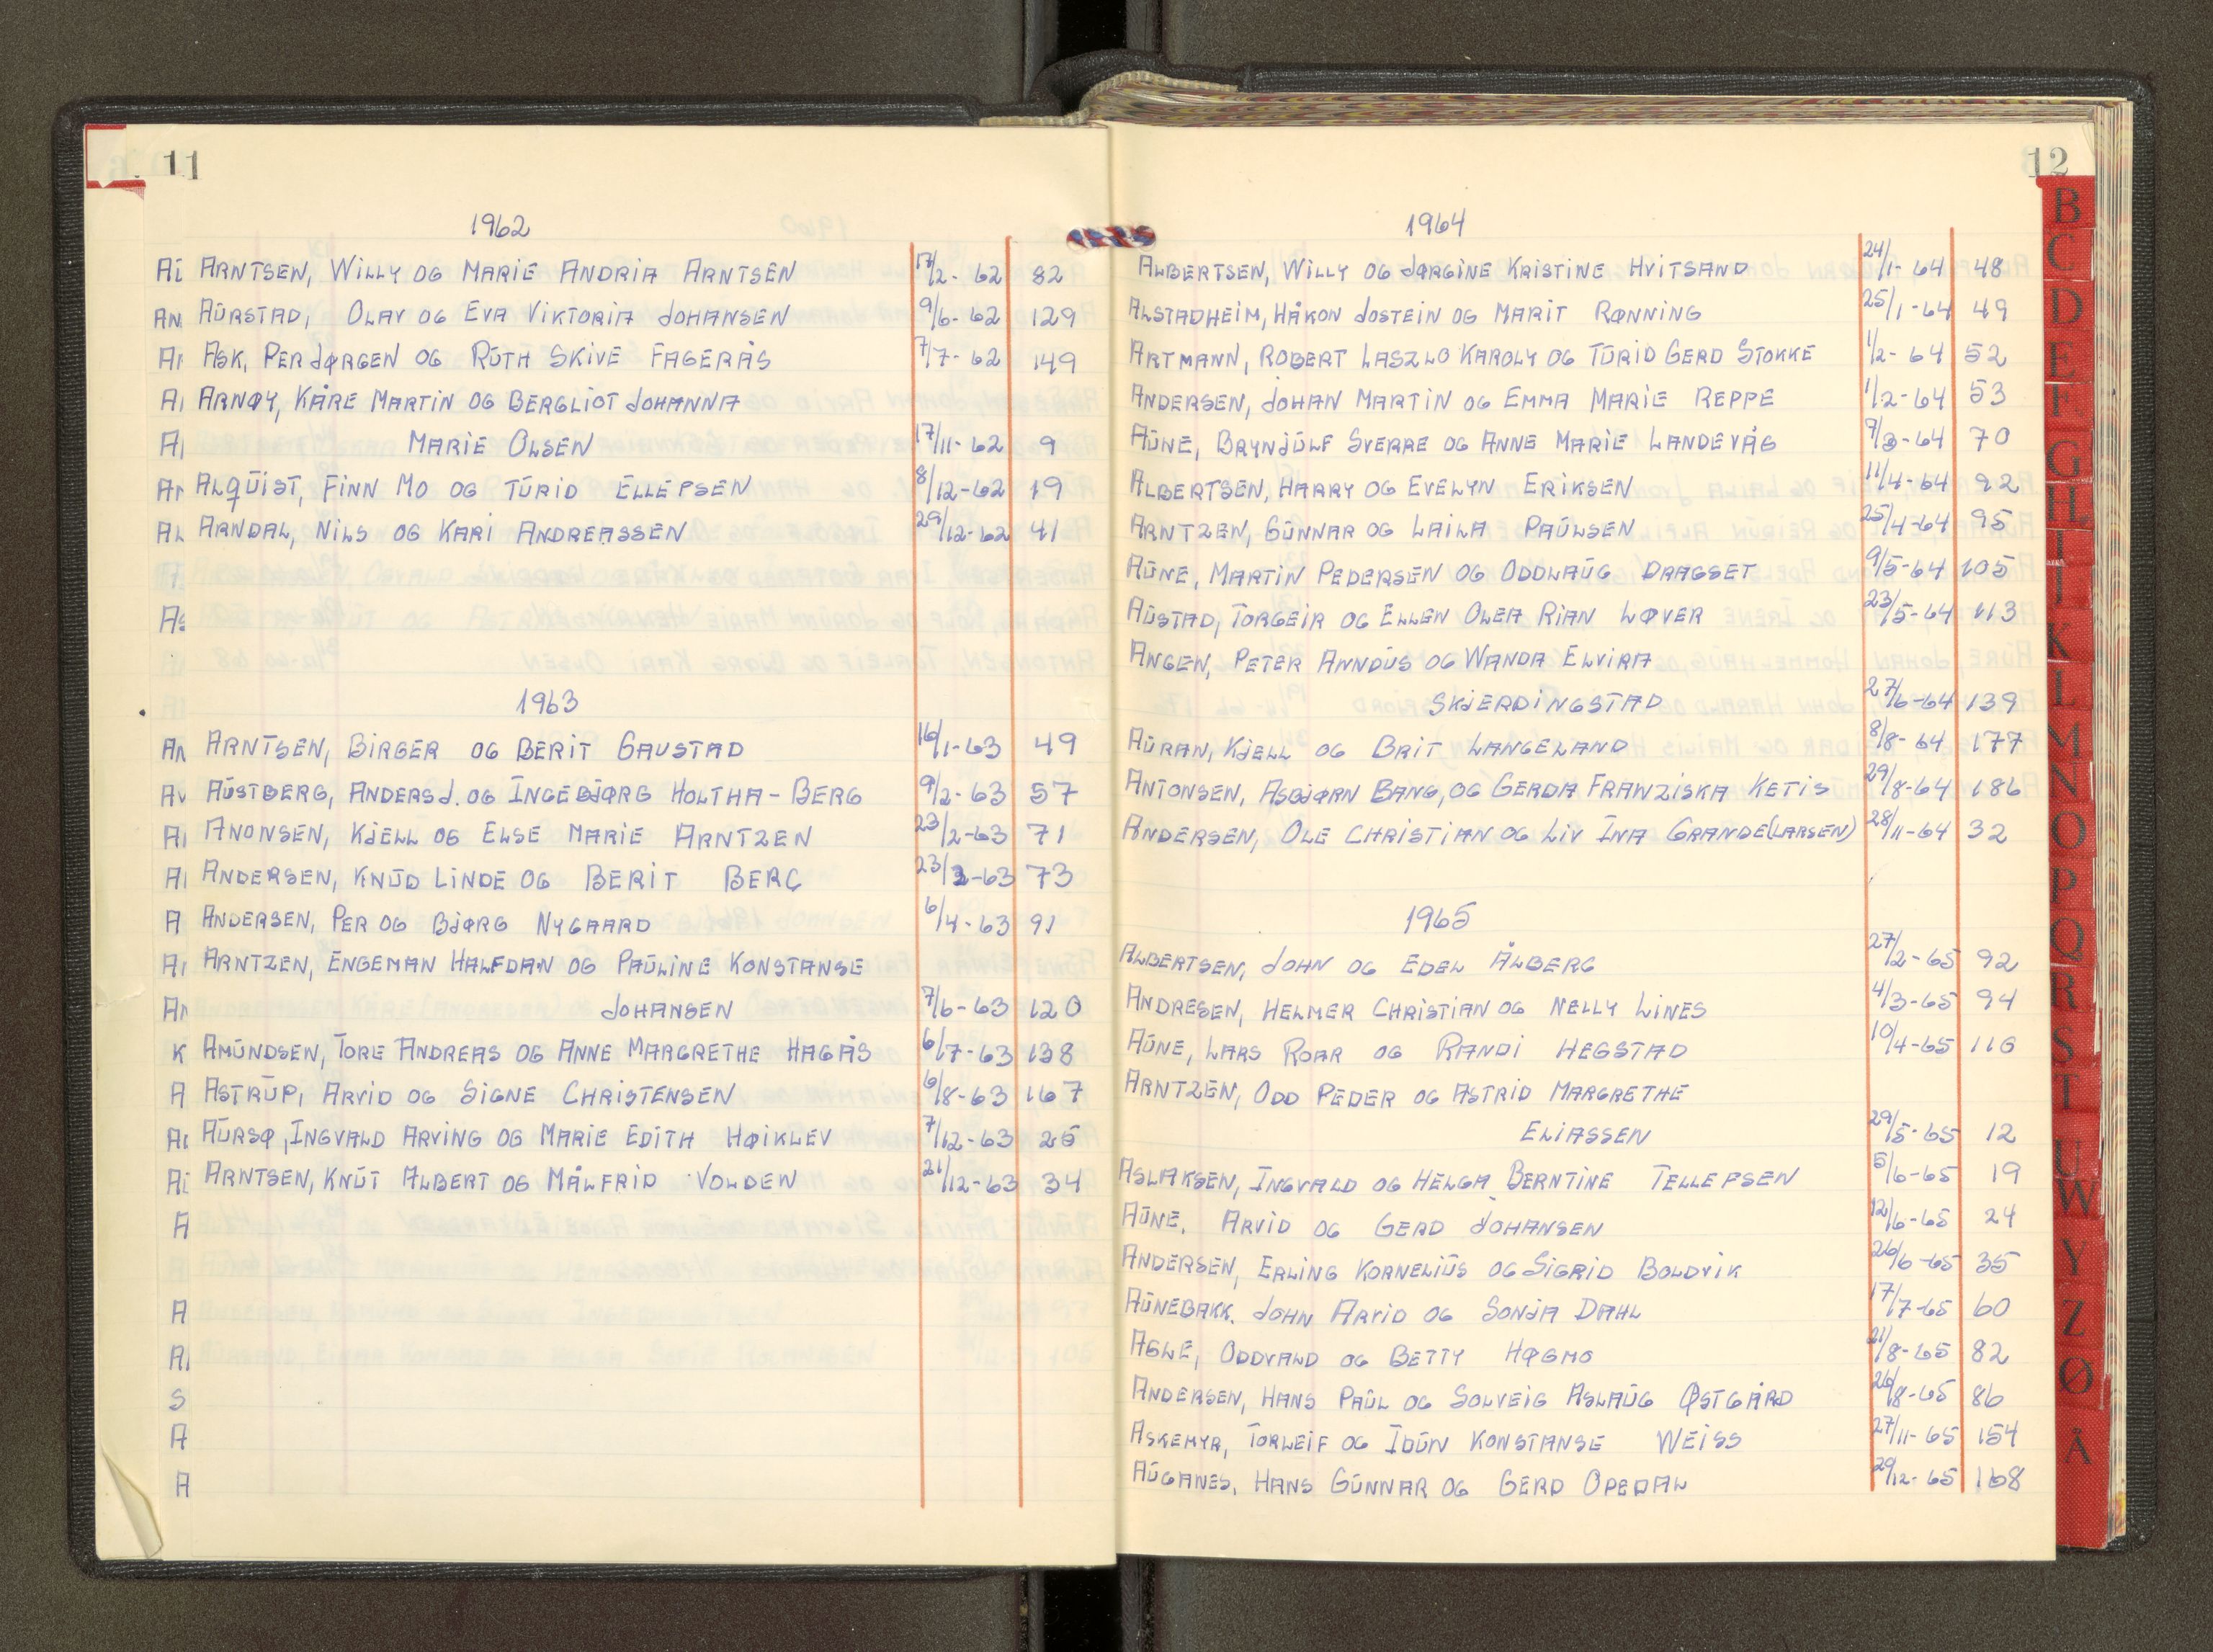 11
1962
ARNTSEN, WILLY OG MARIE ANDRIA ARNTSEN 17/2-62 82
AURSTAD, OLAV OG EVA VIKTORIA JOHANSEN 9/6-62 129
ASK, PER JØRGEN OG RUTH SKIVE FAGERÅS 7/7-62 149
ARNØY, KÅRE MARTIN OG BERGLIOT JOHANNA
MARIE OLSEN 17/11-62 9
ALQUIST, FINN MO OG TURID ELLEFSEN 8/12-62 19
ARNDAL, NILS OG KARI ANDREASSEN 29/12-62 41
1963
ARNTSEN, BIRGER OG BERIT GAUSTAD 16/1-63 49
AUSTBERG, ANDERS J. OG INGEBJØRG HOLTHA-BERG 9/2-63 57
ANONSEN, KJELL OG ELSE MARIE ARNTZEN 23/2-63 71
ANDERSEN, KNUD LINDE OG BERIT BERG 23/2-63 73
ANDERSEN, PER OG BJØRG NYGAARD 6/4-63 91
ARNTZEN, ENGEMAN HALFDAN OG PAULINE KONSTANSE
JOHANSEN 7/6-63 120
AMUNDSEN, TORE ANDREAS OG ANNE MARGRETHE HAGÅS 6/7-63 138
ASTRUP, ARVID OG SIGNE CHRISTENSEN 6/8-63 167
AURSØ, INGVALD ARVING OG MARIE EDITH HØIKLEV 7/12-63 25
ARNTSEN, KNUT ALBERT OG MÅLFRID VOLDEN 21/12-63 34
12
1964
ALBERTSEN, WILLY OG JØRGINE KRISTINE HVITSAND 24/1-64 48
ALSTADHEIM, HÅKON JOSTEIN OG MARIT RØNNING 25/1-64 49
ARTMANN, ROBERT LASZLO KAROLY OG TURID GERD STOKKE 1/2-64 52
ANDERSEN, JOHAN MARTIN OG EMMA MARIE REPPE 1/2-64 53
AUNE, BRYNJULF SVERRE OG ANNE MARIE LANDEVÅG 9/3-64 70
ALBERTSEN, HARRY OG EVELYN ERIKSEN 11/4-64 92
ARNTZEN, GUNNAR OG LAILA PAULSEN 25/4-64 95
AUNE, MARTIN PEDERSEN OG ODDLAUG DRAGSET 9/5-64 105
AUSTAD, TORGEIR OG ELLEN OLEA RIAN LØVER 23/5-64 113
ANGEN, PETER ANNDUS OG WANDA ELVIRA
SKJERDINGSTAD 27/6-64 139
AURAN, KJELL OG BRIT LANGELAND 8/8-64 177
ANTONSEN, ASBJØRN BANG, OG GERDA FRANZISKA KETIS 29/8-64 186
ANDERSEN, OLE CHRISTIAN OG LIV INA GRANDE(LARSEN) 28/11-64 32
1965
ALBERTSEN, JOHN OG EDEL ÅLBERG 27/2-65 92
ANDRESEN, HELMER CHRISTIAN OG NELLY LINES 4/3-65 94
AUNE, LARS ROAR OG RANDI HEGSTAD 10/4-65 116
ARNTZEN, ODD PEDER OG ASTRID MARGRETHE
ELIASSEN 29/5-65 12
ASLAKSEN, INGVALD OG HELGA BERNTINE TELLEFSEN 5/6-65 19
AUNE, ARVID OG GERD JOHANSEN 12/6-65 24
ANDERSEN, ERLING KORNELIUS OG SIGRID BOLDVIK 26/6-65 35
AUNEBAKK, JOHN ARVID OG SONJA DAHL 17/7-65 60
AGLE, ODDVALD OG BETTY HØGMO 21/8-65 82
ANDERSEN, HANS PAUL OG SOLVEIG ASLAUG ØSTGÅRD 26/8-65 86
ASKEMYR, TORLEIF OG IDUN KONSTANSE WEISS 27/11-65 154
AUGANES, HANS GUNNAR OG GERD OPEDAL 29/12-65 168
B
C
D
E
F
G
H
I
J
K
L
M
N
O
P
Q
R
S
T
U
W
Y
Z
Ø
Å